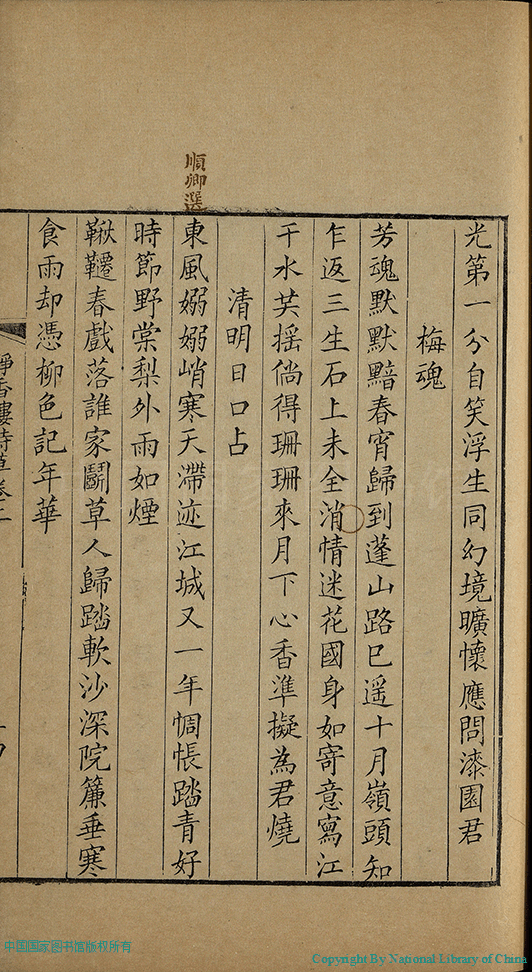 光第一分自笑浮生同幻境曠懷應問漆園君
梅魂
芳魂默默黯春宵歸到蓬山路已遥十月嶺頭知
乍返三生石上未全消情迷花國身如寄意寫江
干水芙摇倘得珊珊來月下心香準擬為君燒
清明日口占
順卿選
東風嫋嫋峭寒天滯迹江城又一年惆悵踏青好
時節野棠梨外雨如煙
鞦韆春戲落誰家鬭草人歸踏軟沙深院簾垂寒
食雨却憑柳色記年華
香
詩草卷二
中国国家图书馆版权所有
Copyright By National Library of China